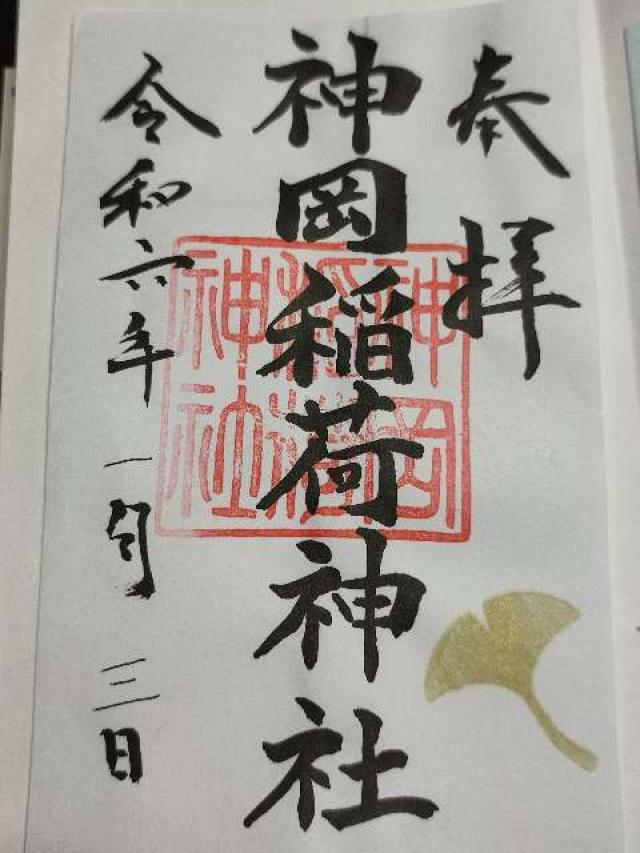 奉拝
神岡稲荷神社
神岡
稲荷
神社
令和六年一月三日